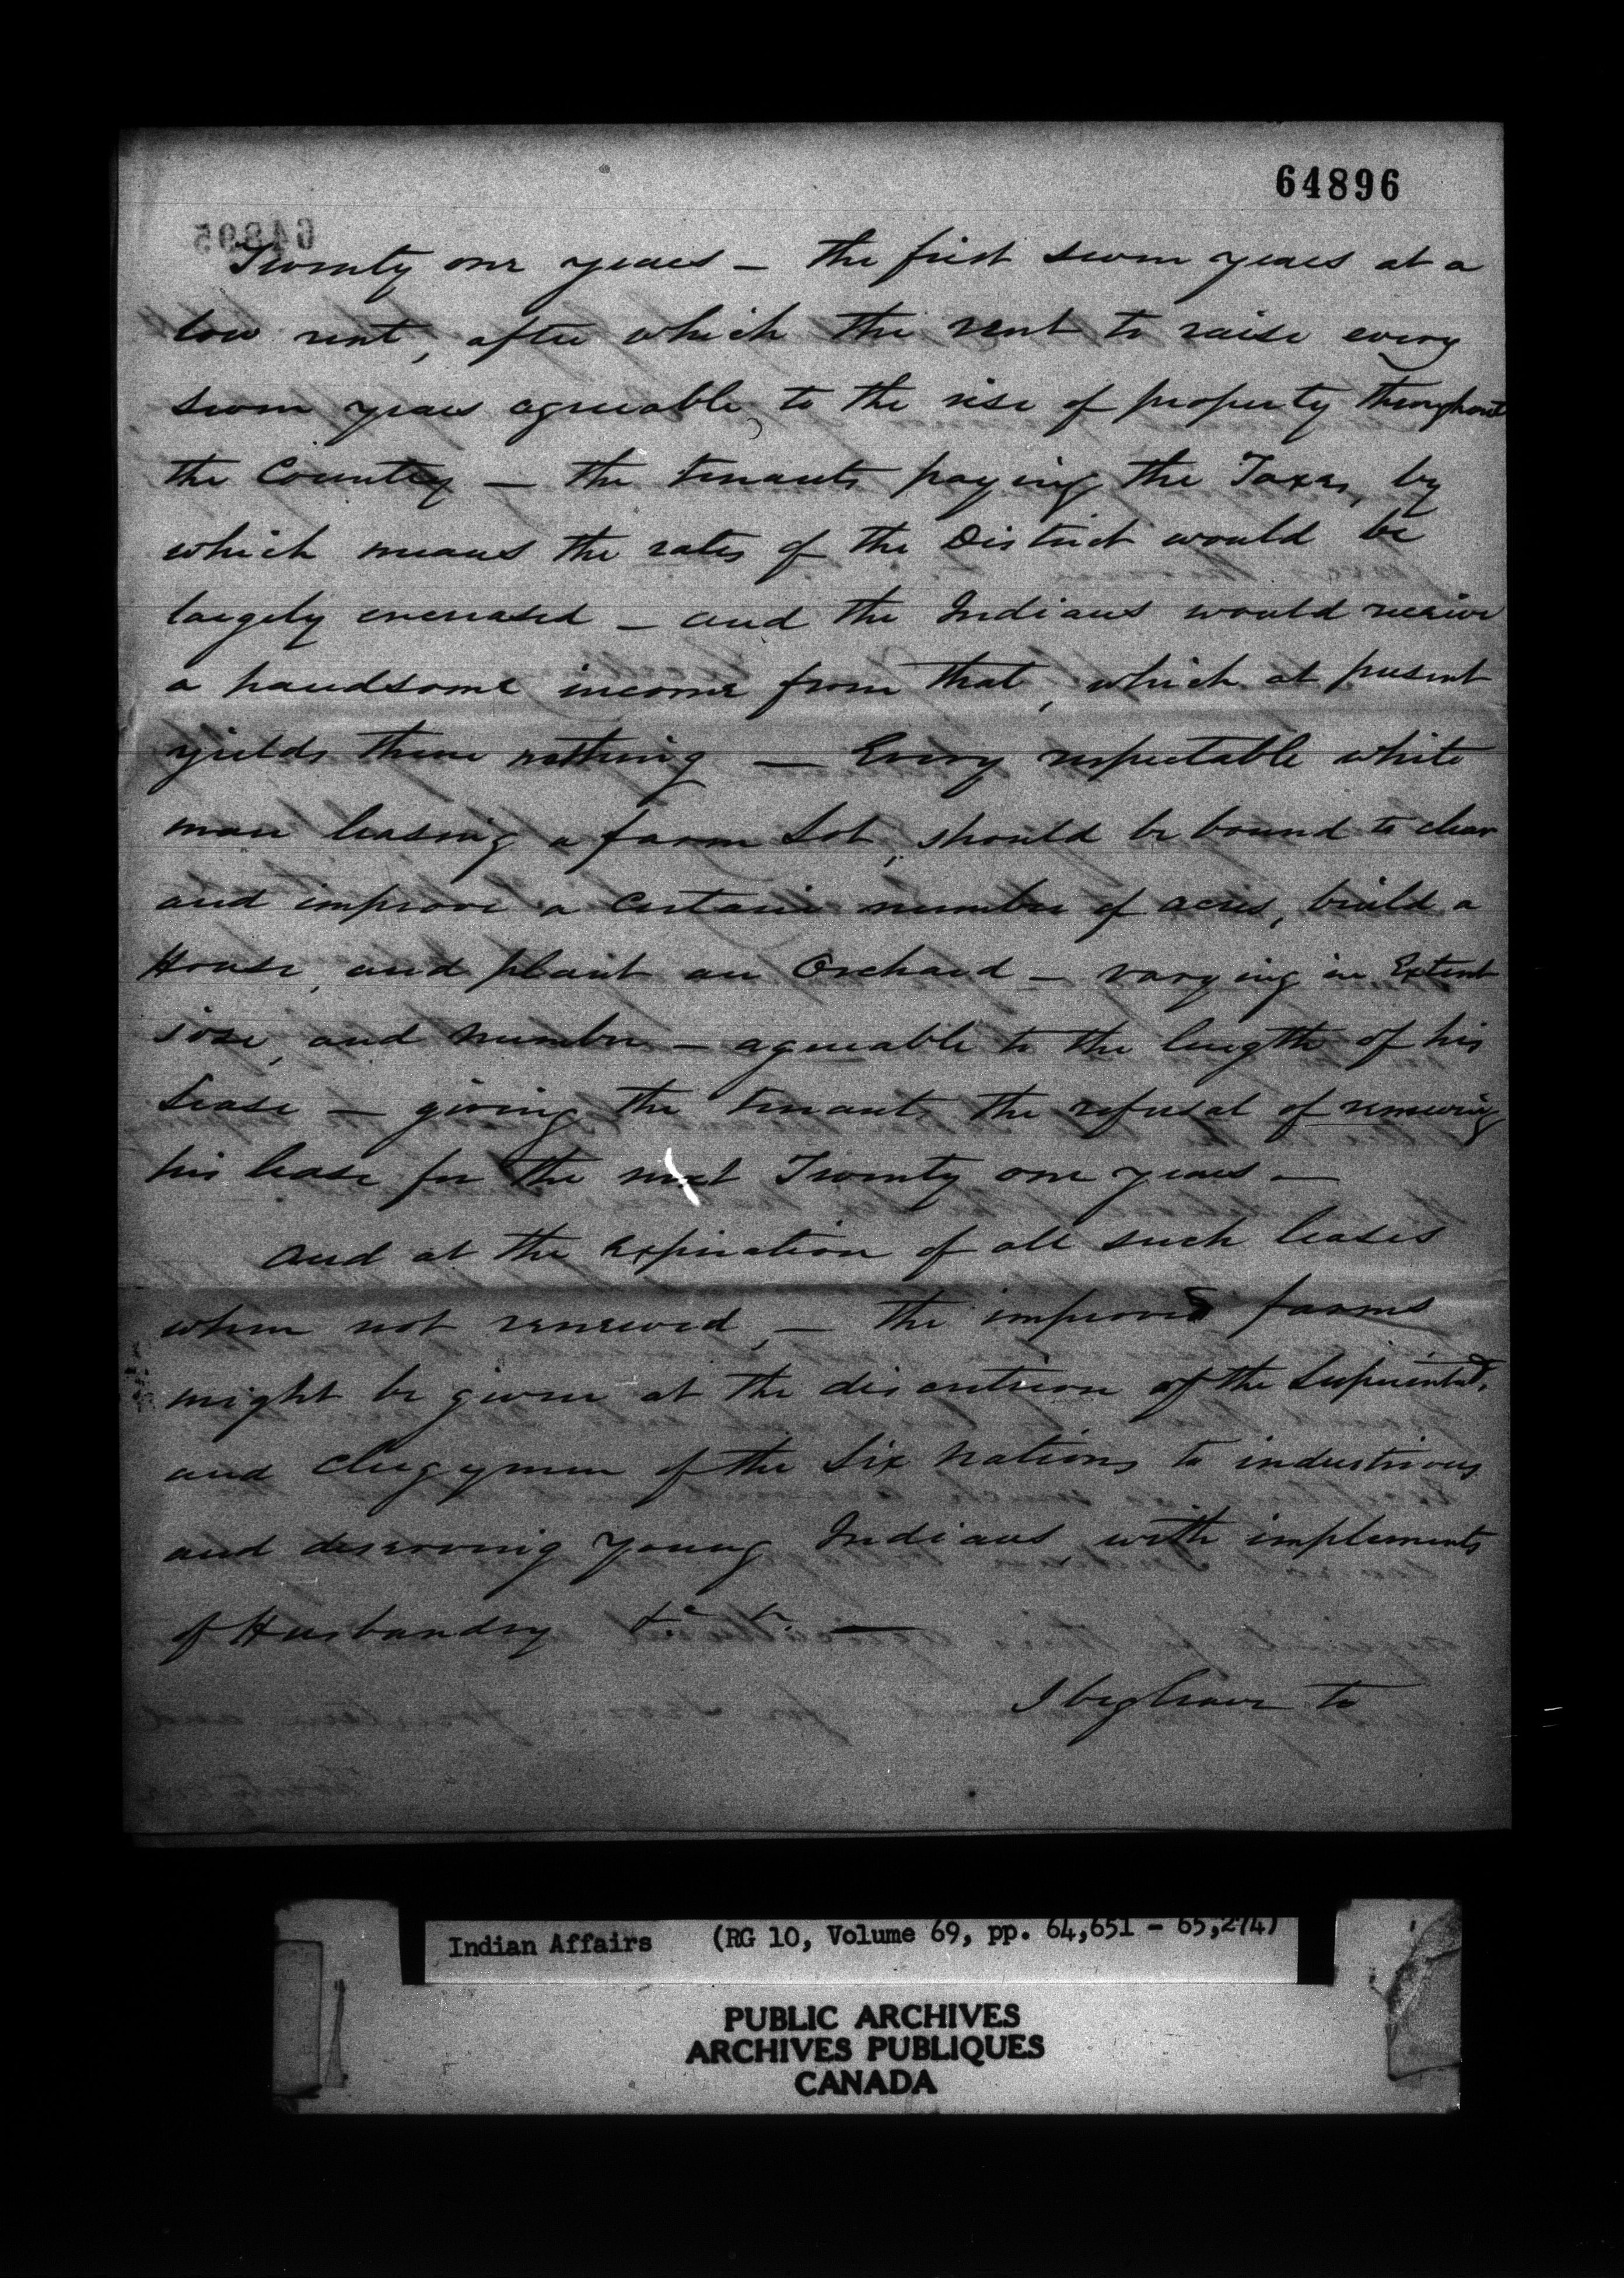 64896
64895
Twenty one years — the first seven years at a
low rent, after which the rent to raise every
seven years agreeable to the rise of property throughout
the County — the tenants paying the Taxes, by
which means the rates of the District would be
largely encreased — and the Indians would receive
a handsome income from that, which at present
yields them nothing — Every respectable white
man leasing a farm Lot, should be bound to clear
and improve a certain number of acres, build a
House, and plant an Orchard — varying in Extent
size, and number — agreeable to the length of his
Lease — giving the tenant the refusal of renewing
his lease for the next Twenty one years —
And at the expiration of all such leases
when not renewed, — the improved farms
might be given at the discretion of the Superintendt.
and Clergymen of the Six Nations to industrious
and deserving young Indians, with implements
of Husbandry &c &c. —
I beg leave to
Indian Affairs (RG 10, Volume 69, pp. 64,651 - 65,274)
PUBLIC ARCHIVES
ARCHIVES PUBLIQUES
CANADA